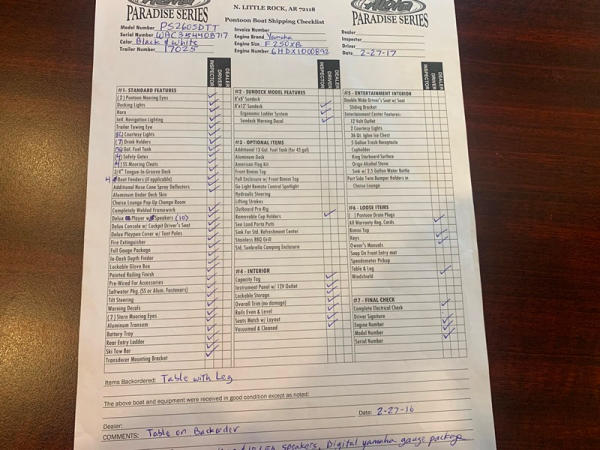 Aloha
PARADISE SERIES
N. LITTLE ROCK, AR 72118
Pontoon Boat Shipping Checklist
Aloha
PARADISE SERIES
Model Number PS2605DTT
Serial Number
Color Black & White
Trailer Number 17025
Invoice Number
Engine Brand Yamaha
Engine Size F250XB
Engine Number 6HDX1000892
Dealer
Inspector
Driver
Date 2-27-17
DEALER
DRIVER
INSPECTOR
#1- STANDARD FEATURES
(2) Pontoon Mooring Eyes
Docking Lights
Horn
Intl. Navigation Lighting
Trailer Towing Eye
Courtesy Lights
(7) Drink Holders
Gal. Fuel Tank
(4) Safety Gates
(4) SS Mooring Cleats
3/4" Tongue-in-Groove Deck
4 Boat Fenders (if applicable)
Additional Nose Cone Spray Deflectors
Aluminum Under Deck Skin
Chaise Lounge Pop Up Change Room
Completely Welded Framework
Delux Player w/ Speakers (10)
Delux Console w/ Cockpit Driver's Seat
Delux Playpen Cover w/ Tent Poles
Fire Extinguisher
Full Gauge Package
In-Deck Depth Finder
Lockable Glove Box
Painted Railing Finish
Pre-Wired For Accessories
Saltwater Pkg. (SS or Alum. Fasteners)
Tilt Steering
Warning Decals
(7) Stern Mooring Eyes
Aluminum Transom
Battery Tray
Rear Entry Ladder
Ski Tow Bar
Transducer Mounting Bracket
DEALER
DRIVER
INSPECTOR
#2 - SUNDECK MODEL FEATURES
8'x8' Sundeck
8'x12' Sundeck
Ergonomic Ladder System
Sundeck Warning Decal
#3 - OPTIONAL ITEMS
Additional 13 Gal. Fuel Tank (for 45 gal)
Aluminum Deck
American Flag Kit
Front Bimini Top
Full Enclosure w/ Front Bimini Top
Go Light Remote Control Spotlight
Hydraulic Steering
Lifting Strakes
Outboard Pre-Rig
Removable Cup Holders
Sea Land Porta Potti
Sink For Std. Refreshment Center
Stainless BBQ Grill
Std. Sunbrella Camping Enclosure
#4 - INTERIOR
Capacity Tag
Instrument Panel w/ 12V Outlet
Lockable Storage
Overall Trim (no damage)
Rails Even & Level
Seats Match w/ Layout
Vacuumed & Cleaned
DEALER
DRIVER
INSPECTOR
#5 - ENTERTAINMENT INTERIOR
Double Wide Driver's Seat w/ Seat
Sliding Bracket
Entertainment Center Features:
12 Volt Outlet
2 Courtesy Lights
36 Qt. Igloo Ice Chest
5 Gallon Trash Receptacle
Cupholder
King Starboard Surface
Origo Alcohol Stove
Sink w/ 2.5 Gallon Water Bottle
Port Side Twin Bumper Holders in
Chaise Lounge
#6 - LOOSE ITEMS
( ) Pontoon Drain Plugs
All Warranty Reg. Cards
Bimini Top
Keys
Owner's Manuals
Snap On Front Entry mat
Speedometer Pickup
Table & Leg
Windshield
#7 - FINAL CHECK
Complete Electrical Check
Driver Signature
Engine Number
Model Number
Serial Number
Items Backordered: Table with Leg
The above boat and equipment were received in good condition except as noted:
Date: 2-27-16
Dealer:
COMMENTS: Table on Backorder
speakers, Digital yamaha gauge package